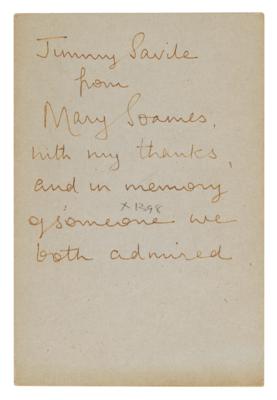 Jimmy Savile
from
Mary Soames,
with my thanks,
and in memory
of someone we
x 1398
both admired